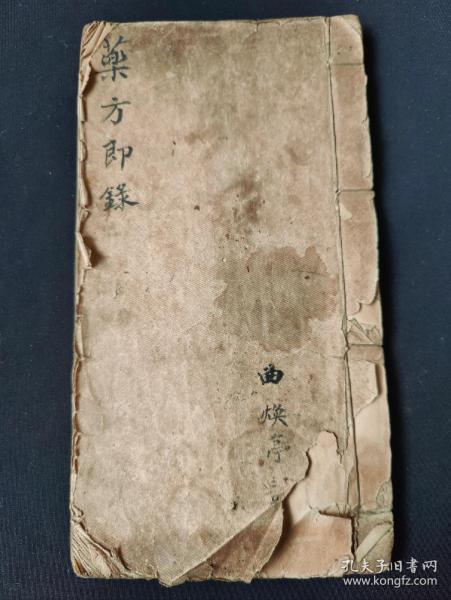 藥方即錄
曲煥亭
孔夫子旧书网
www.kongfz.com